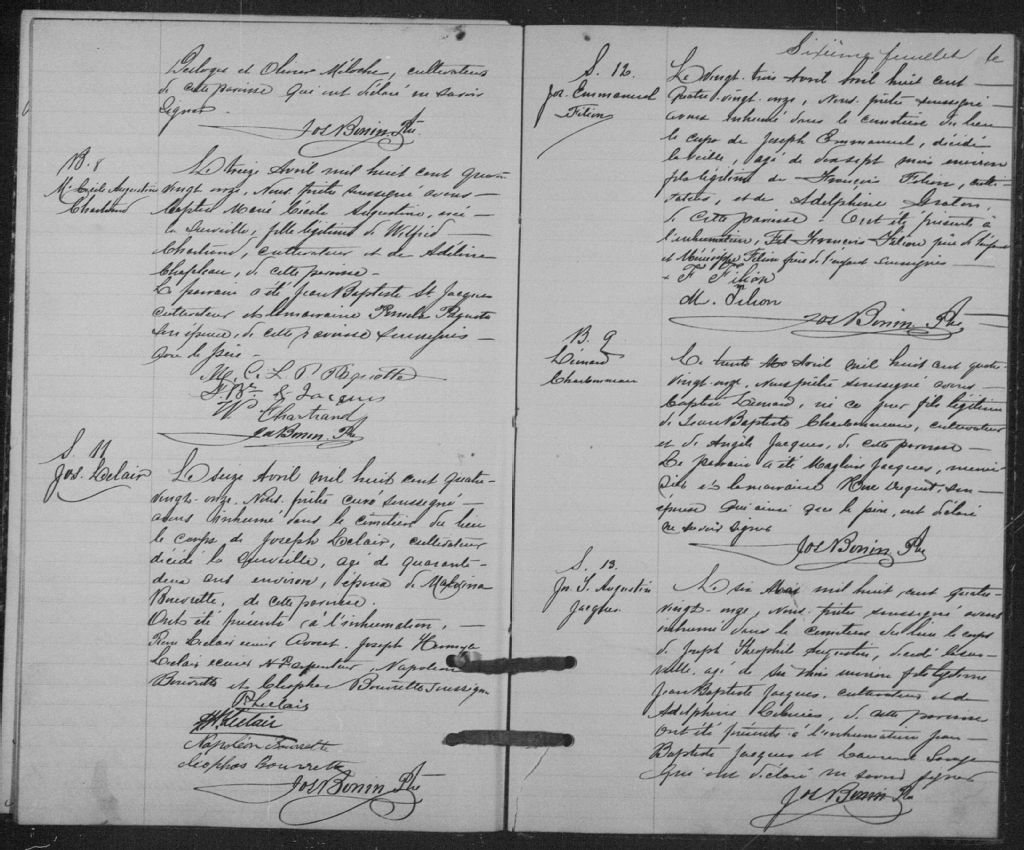 et Olivier Miloche, cultivateurs
de cette paroisse qui ont déclaré ne savoir
signer.
Jos Bonin Ptre
B. 8
M. Cécile Augustine
Chartrand
Le treize Avril mil huit cent quatre
vingt-onze, Nous prêtre soussigné avons
baptisé Marie Cécile Augustine, née
la surveille, fille légitime de Wilfrid
Chartrand, cultivateur et de Adéline
Chapleau, de cette paroisse.
Le parrain a été Jean Baptiste St. Jacques
cultivateur et la marraine Paquette
son épouse, de cette paroisse soussignés
avec le père.
M. C. L. P. Paquette
J. Bte St Jacques
W Chartrand
Jos Bonin Ptre
S. 11
Jos. Leclair
Le seize Avril mil huit cent quatre-
vingt-onze, Nous prêtre curé soussigné
avons inhumé dans le cimetière du lieu
le corps de Joseph Leclair, cultivateur
décédé la surveille, agé de quarante-
deux ans environ, époux de Malvina
Bourette, de cette paroisse.
Ont été présents à l'inhumation,
Leclair ecuier Avocat, Joseph
Leclair ecuier Napoléon
Bourette et Cléophas Bourette soussignés
P. Leclair
Leclair
Napoléon Bourrette
Cléophas Bourrette
Jos Bonin Ptre
Sixième feuillet 6
S. 12.
Jos. Emmanuel
Filion
Le vingt-trois Avril mil huit cent
quatre-vingt-onze, Nous prêtre soussigné
avons inhumé dans le cimetière du lieu
le corps de Joseph Emmanuel, décédé
la veille, agé de dix-sept mois environ
fils légitime de François Filion, culti-
vateur, et de Adelphine Graton,
de cette paroisse. Ont été présents à
l'inhumation, François Filion père de l'enfant
et Filion frère de l'enfant soussignés
F Filion
M. Filion
Jos Bonin Ptre
B. 9
Léonard
Charbonneau
Le trente Avril mil huit cent quatre
vingt-onze, Nous prêtre soussigné avons
baptisé Léonard, né ce jour fils légitime
de Jean Baptiste Charbonneau, cultivateur
et de Angèle Jacques, de cette paroisse
Le parrain a été Magloire Jacques, menui-
sier et la marraine son
épouse qui ainsi que le père, ont déclaré
ne savoir signer
Jos Bonin Ptre
S. 13.
Jos. T. Augustin
Jacques
Le six Mai mil huit cent quatre
vingt-onze, Nous prêtre soussigné avons
inhumé dans le cimetière du lieu le corps
de Joseph Théophile Augustin, décédé l'avant-
veille, agé de six mois environ fils légitime
Jean Baptiste Jacques, cultivateur et de
Adelphine de cette paroisse
Ont été présents à l'inhumation Jean
Baptiste Jacques et Laurent
qui ont déclaré ne savoir signer
Jos Bonin Ptre